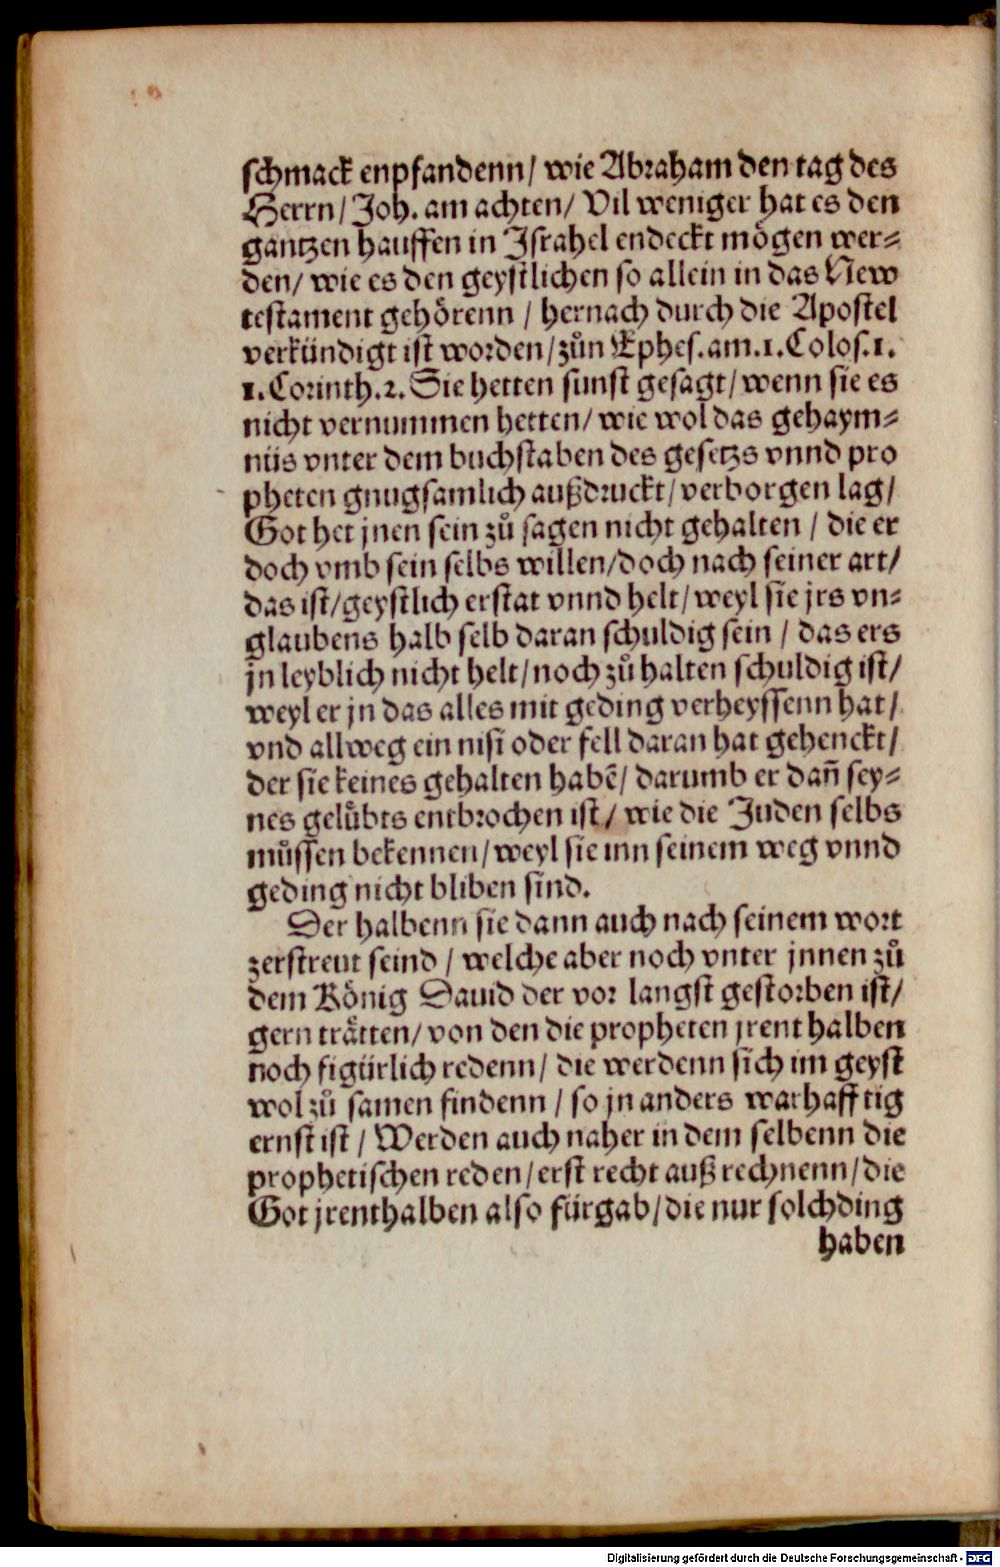 schmack enpfandenn/ wie Abraham den tag des
Herrn/ Joh. am achten/ Vil weniger hat es den
gantzen hauffen in Jsrahel endeckt mögen wer⸗
den/ wie es den geystlichen so allein in das New
testament gehörenn / hernach durch die Apostel
verkündigt ist worden/ zůn Ephes. am. 1. Colos. 1.
1. Corinth. 2. Sie hetten sunst gesagt/ wenn sie es
nicht vernummen hetten/ wie wol das gehaym⸗
nüs vnter dem buchstaben des gesetzs vnnd pro
pheten gnugsamlich außdruckt/ verborgen lag/
Got het jnen sein zů sagen nicht gehalten / die er
doch vmb sein selbs willen/ doch nach seiner art/
das ist/ geystlich erstat vnnd helt/ weyl sie jrs vn⸗
glaubens halb selb daran schuldig sein / das ers
jn leyblich nicht helt/ noch zů halten schuldig ist/
weyl er jn das alles mit geding verheyssenn hat/
vnd allweg ein nisi oder fell daran hat gehenckt/
der sie keines gehalten habē/ darumb er dañ sey⸗
nes gelübts entbrochen ist/ wie die Juden selbs
müssen bekennen/ weyl sie inn seinem weg vnnd
geding nicht bliben sind.
Der halbenn sie dann auch nach seinem wort
zerstreut seind / welche aber noch vnter jnnen zů
dem König Dauid der vor langst gestorben ist/
gern trätten/ von den die propheten jrent halben
noch figürlich redenn/ die werdenn sich im geyst
wol zů samen findenn / so jn anders warhafftig
ernst ist / Werden auch naher in dem selbenn die
prophetischen reden/ erst recht auß rechnenn/ die
Got jrenthalben also fürgab/ die nur solch ding
haben
Digitalisierung gefördert durch die Deutsche Forschungsgemeinschaft - DFG